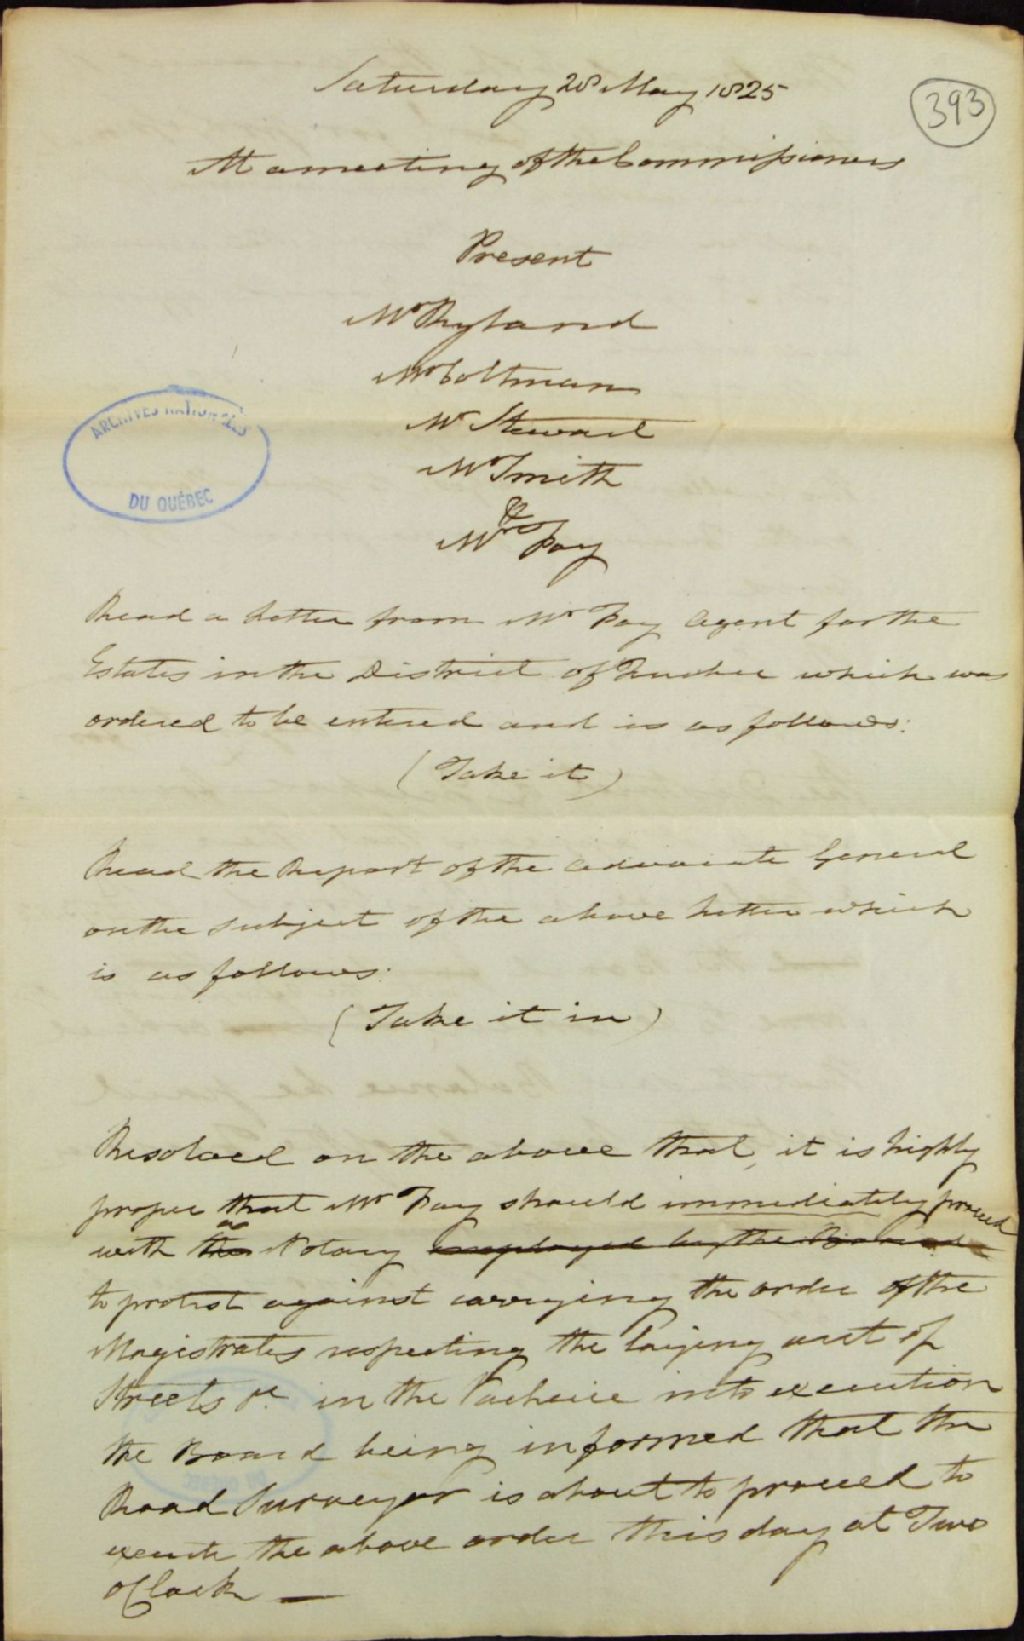 Saturday 28 May 1825
393
At a meeting of the Commissioners
Present
Mr Ryland
Mr Coltman
Mr Stewart
Mr Smith
&
Mr Fay
ARCHIVES NATIONALES
DU QUÉBEC
Read a Letter from Mr Fay Agent for the
Estates in the District of Quebec which was
ordered to be entered and is as follows:
(Take it)
Read the Report of the Advocate General
on the subject of the above letter which
is as follows:
(Take it in)
Resolved on the above that, it is highly
proper that Mr Fay should immediately proceed
with the a Notary employed by the Board
to protest against carrying the order of the
Magistrates respecting the laying out of
Streets &c in the Vacherie into execution
the Board being informed that the
Road Surveyor is about to proceed to
execute the above order this day at Two
oClock —